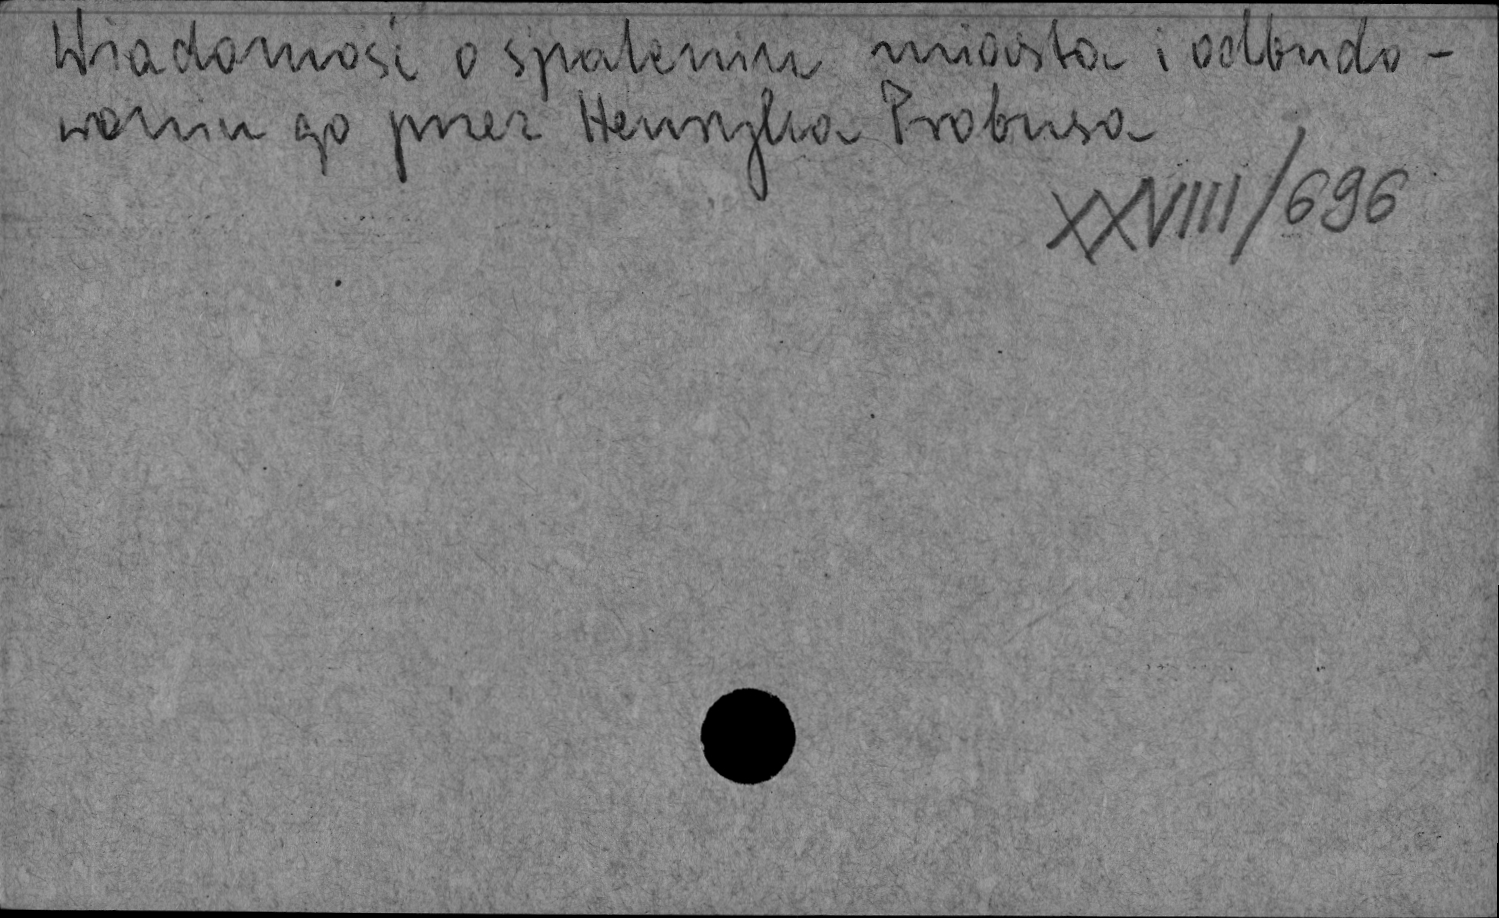 Wiadomość o spaleniu miasta i odbudo-
waniu go przez Henryka Probusa
XXVIIII/696